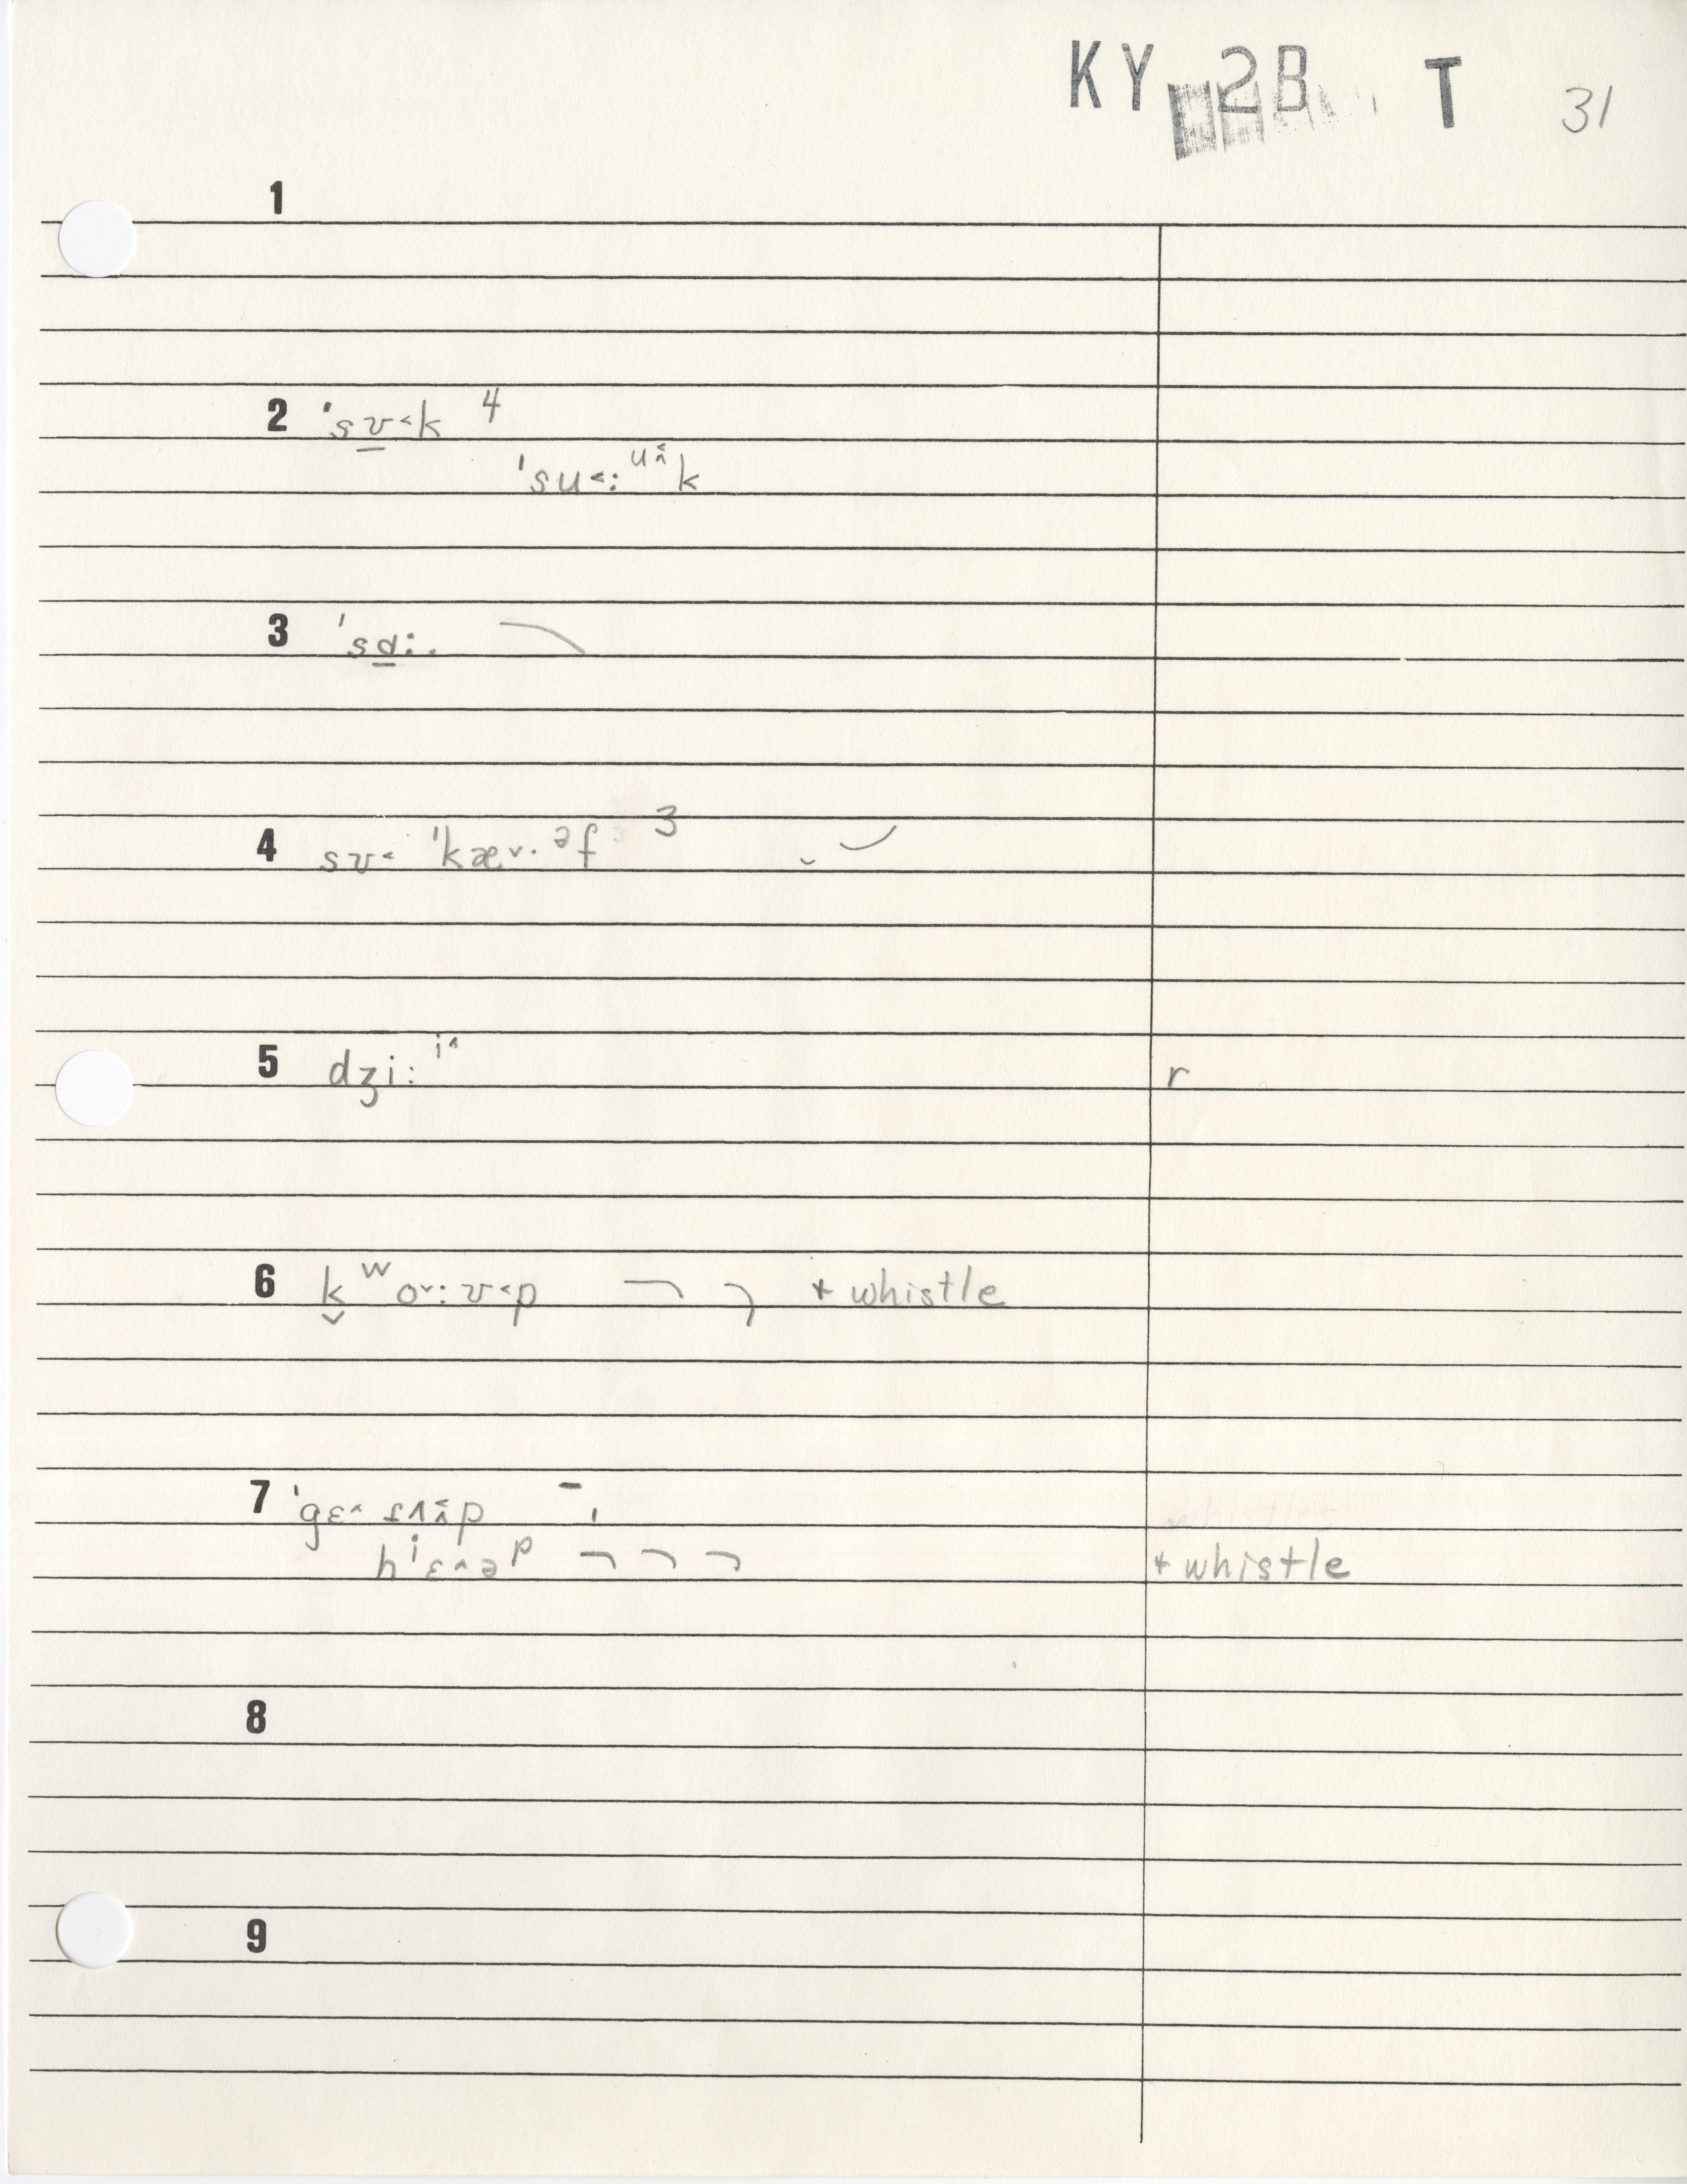 KY 2B T 31
1
2 ˈsʊ̲˂k 4
ˈsu˂: ᵘ k
3 ˈsɑ̲:.
4 sʊ˂ ˈkæ˅· ᵊf 3
5 dʒi: ⁱ^ r
6 k̬ʷo˅:ʊ˂p + whistle
7 ˈgɛ^
hⁱɛ^əᵖ + whistle
8
9